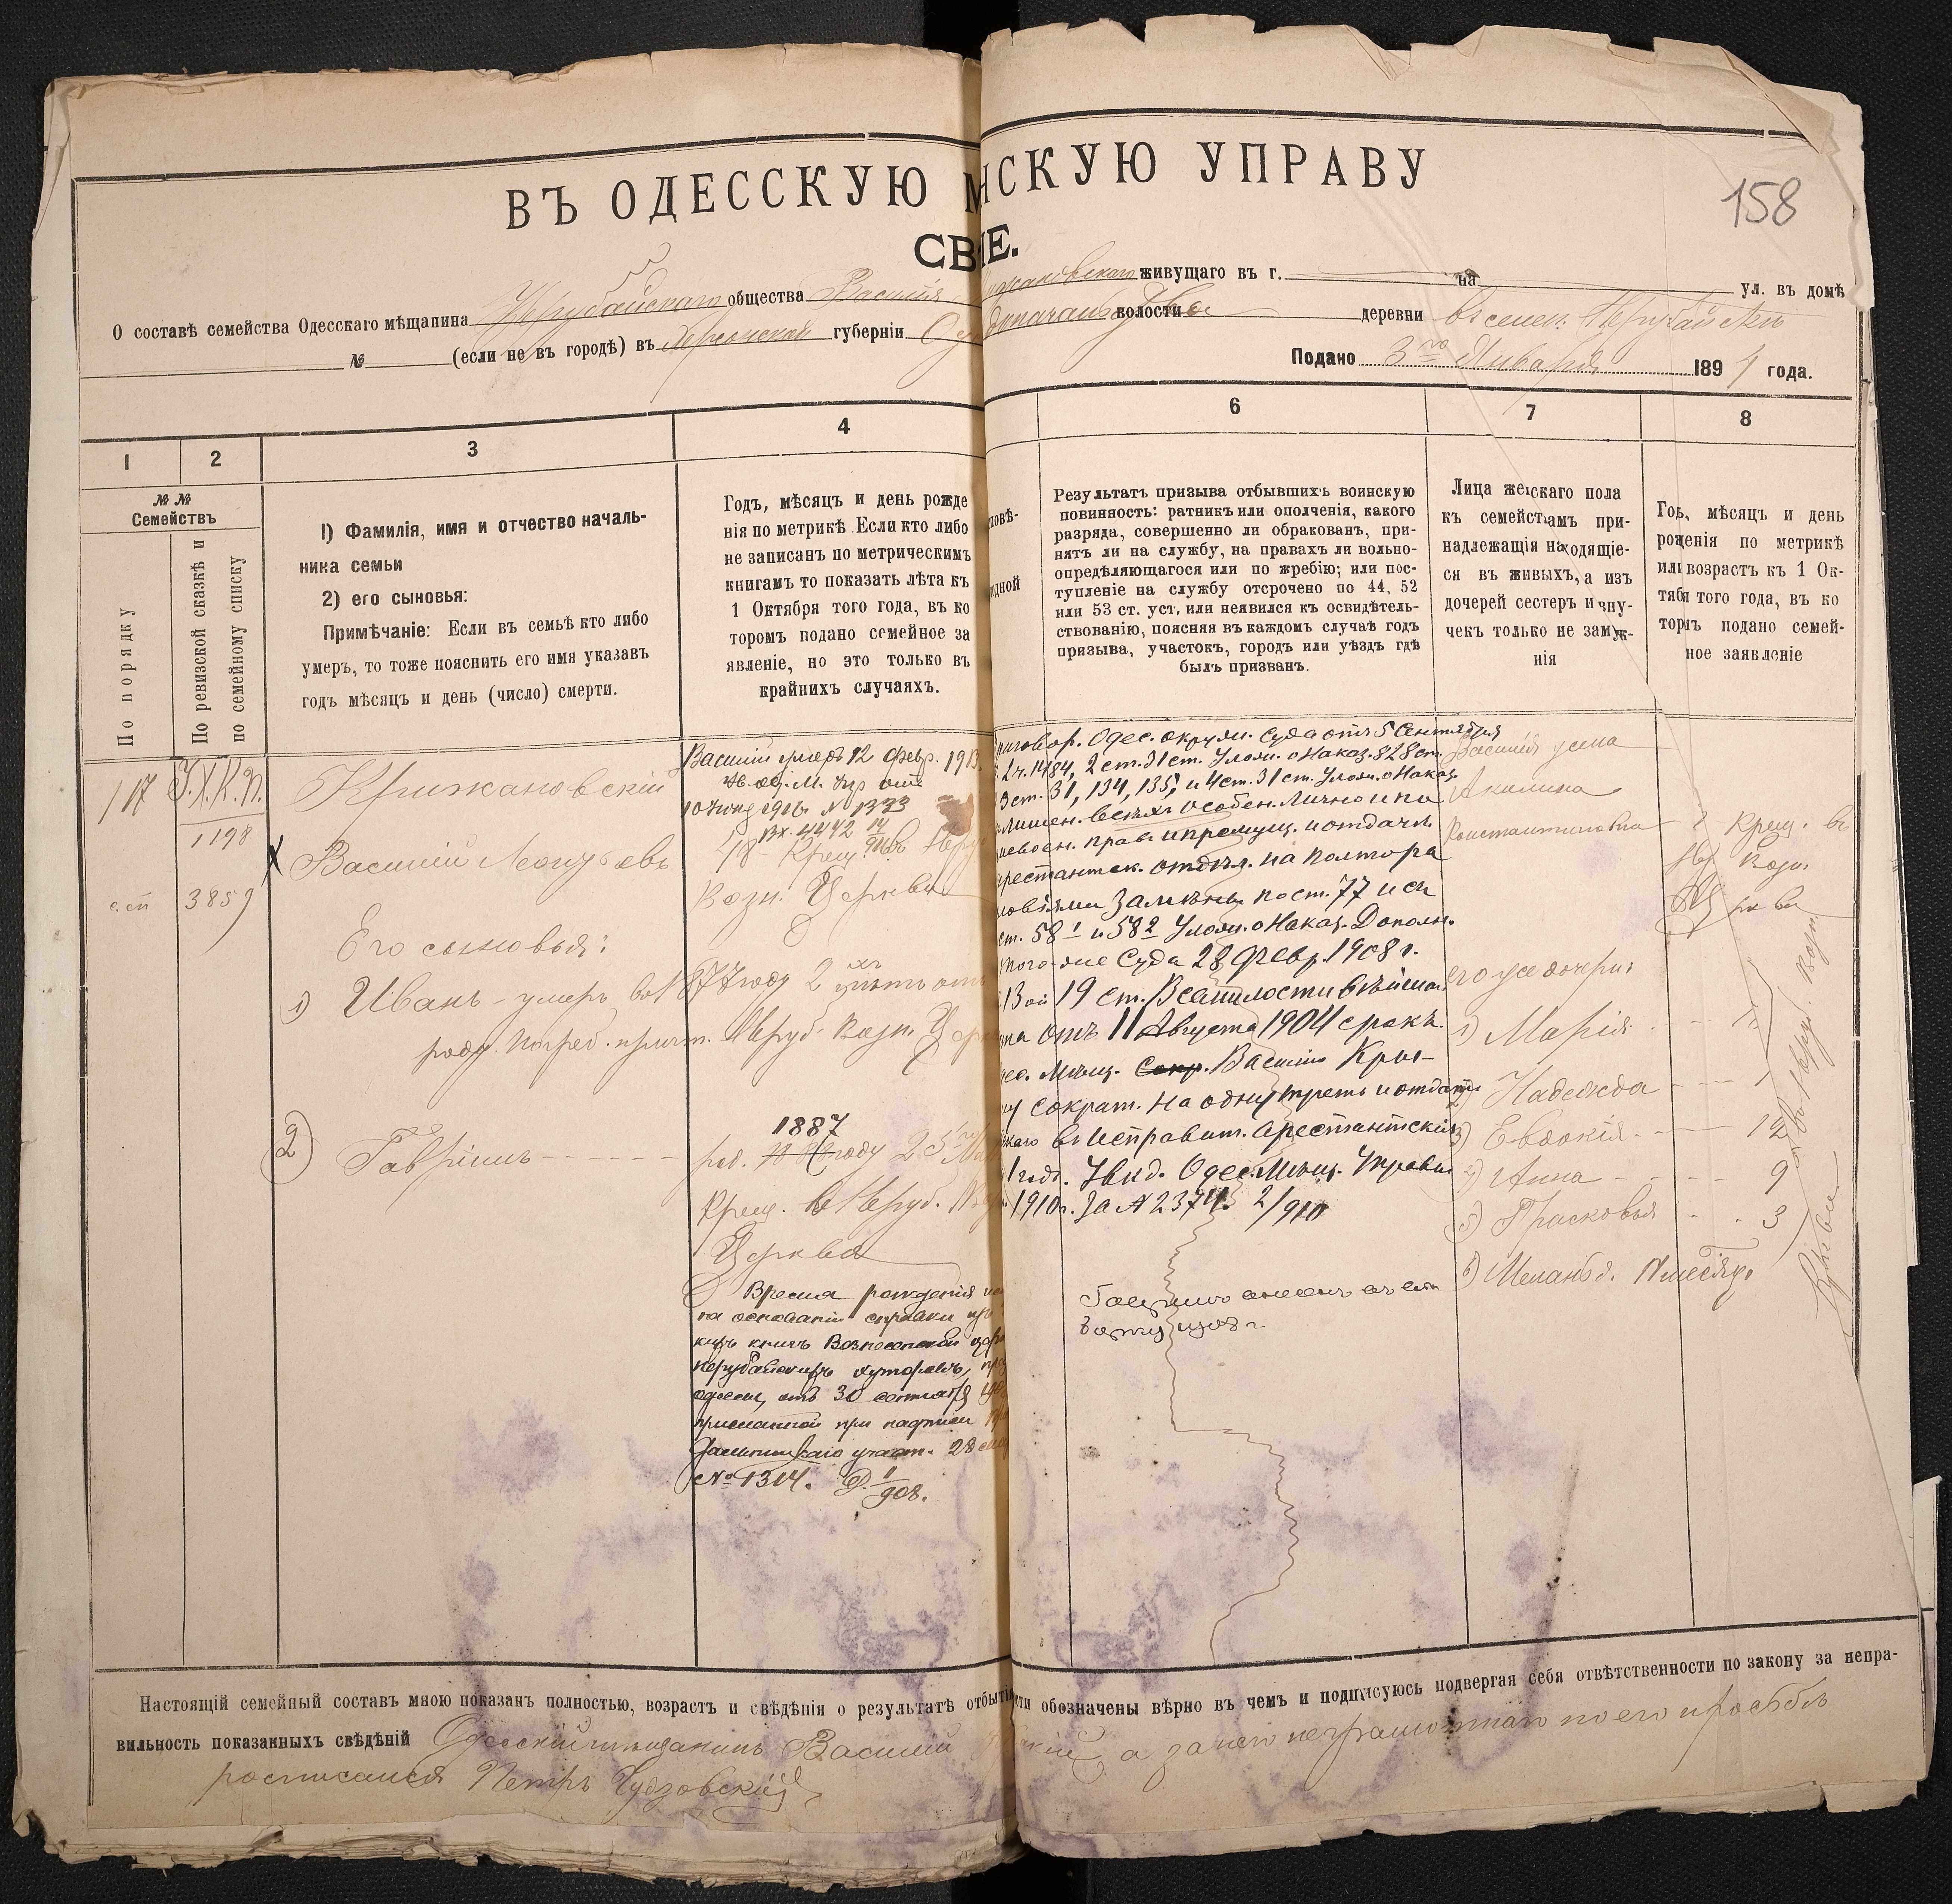 158
ВЪ ОДЕССКУЮ НСКУЮ УПРАВУ
СВ IE.
О составѣ семейства Одесскаго мѣщанина Нерубайскаго общества Василія живущаго въ г. на ул. въ домѣ
№ (если не въ городѣ) въ Херсонской губерніи волости деревни въ селен. Нерубайскомъ
Подано 3го Января 1891 года.
1 2 3 4 6 7 8
№ №
Семействъ
По порядку
По ревизской сказкѣ и
по семейному списку
I) Фамилія, имя и отчество началь-
ника семьи
2) его сыновья:
Примѣчаніе: Если въ семьѣ кто либо
умеръ, то тоже пояснить его имя указавъ
годъ мѣсяцъ и день (число) смерти.
Годъ, мѣсяцъ и день рожде
нія по метрикѣ Если кто либо
не записанъ по метрическимъ
книгамъ то показать лѣта къ
1 Октября того года, въ ко
торомъ подано семейное за
явленіе, но это только въ
крайнихъ случаяхъ.
повѣ-
одной
Результатъ призыва отбывшихъ воинскую
повинность: ратникъ или ополченія, какого
разряда, совершенно ли обракованъ, при-
нятъ ли на службу, на правахъ ли вольно-
опредѣляющагося или по жребію; или пос-
тупленіе на службу отсрочено по 44, 52
или 53 ст. уст. или неявился къ освидѣтель-
ствованію, поясняя въ каждомъ случаѣ годъ
призыва, участокъ, городъ или уѣздъ гдѣ
былъ призванъ.
Лица женскаго пола
къ семействамъ при-
надлежащія находящіе-
ся въ живыхъ, а изъ
дочерей сестеръ и вну-
чекъ только не замуж-
нія
Годъ, мѣсяцъ и день
рожденія по метрикѣ
или возрастъ къ 1 Ок-
тября того года, въ ко
торомъ подано семей-
ное заявленіе
117
Т.Х.К.П.
1198
3859
Крижановскій
Василій Леонтьевъ
Его сыновья:
1) Иванъ - умеръ въ 1877 году 2 хъ лѣтъ отъ
роду. Погреб. причт. Неруб. Возн. Церк
2) Гавріилъ
Василій умеръ 12 Февр. 1913
10 1916 № 1333
Вх. 4442
48 Крещ. въ Неру
Возн. Церкви
1887
род. году 25
Крещ. въ Неруб. Воз
Церкви
Время рожденія
на основаніи справки
книгъ Вознесенской церк
нерубайскихъ хуторахъ,
одессы, отъ 30 сентября
присланной при надписи
участ. 28
№ 1314. 908.
приговор. Одес. окружн. Суда отъ 5 Сентября
2 ч. 1484, 2 ст. 31 ст. Улож. о Наказ. 828 ст.
3 ст. 31, 134, 135, и 4 ст. 31 ст. Улож. о Наказ.
лишен. всѣхъ особен. лично и по
присвоен. правъ и преимущ. и отдачи
арестантск. отдѣл. на полтора
условіями замѣны по ст. 77 и съ
ст. 58 1 и 58 2 Улож. о Наказ. Дополн.
того-же Суда 28 Февр. 1908 г.
19 ст. Всемилостивѣйша.
отъ 11 Августа 1904 срокъ
Одес. Мѣщ. Василію Кры-
сократ. на одну треть и отдать
въ Исправит. Арестантскія
1 годъ. Увид. Одес. Мѣщ. Управы
1910 г. За № 2374. 2/910
Гавріилъ внесенъ
1908 г.
Василія жена
Акилина
Константиновна
его же дочери:
1) Марія
2) Надежда
3) Евдокія
4) Анна
5) Прасковья
6) Меланья. мѣсяц.
крещ. въ
Возн.
Церкви
12
9
3
Настоящій семейный составъ мною показанъ полностью, возрастъ и свѣдѣнія о результатѣ отбыт сти обозначены вѣрно въ чемъ и подписуюсь подвергая себя отвѣтственности по закону за непра-
вильность показанныхъ свѣдѣній Одесскій мѣщанинъ Василій а за него неграмотнаго по его просьбѣ
росписался Петръ